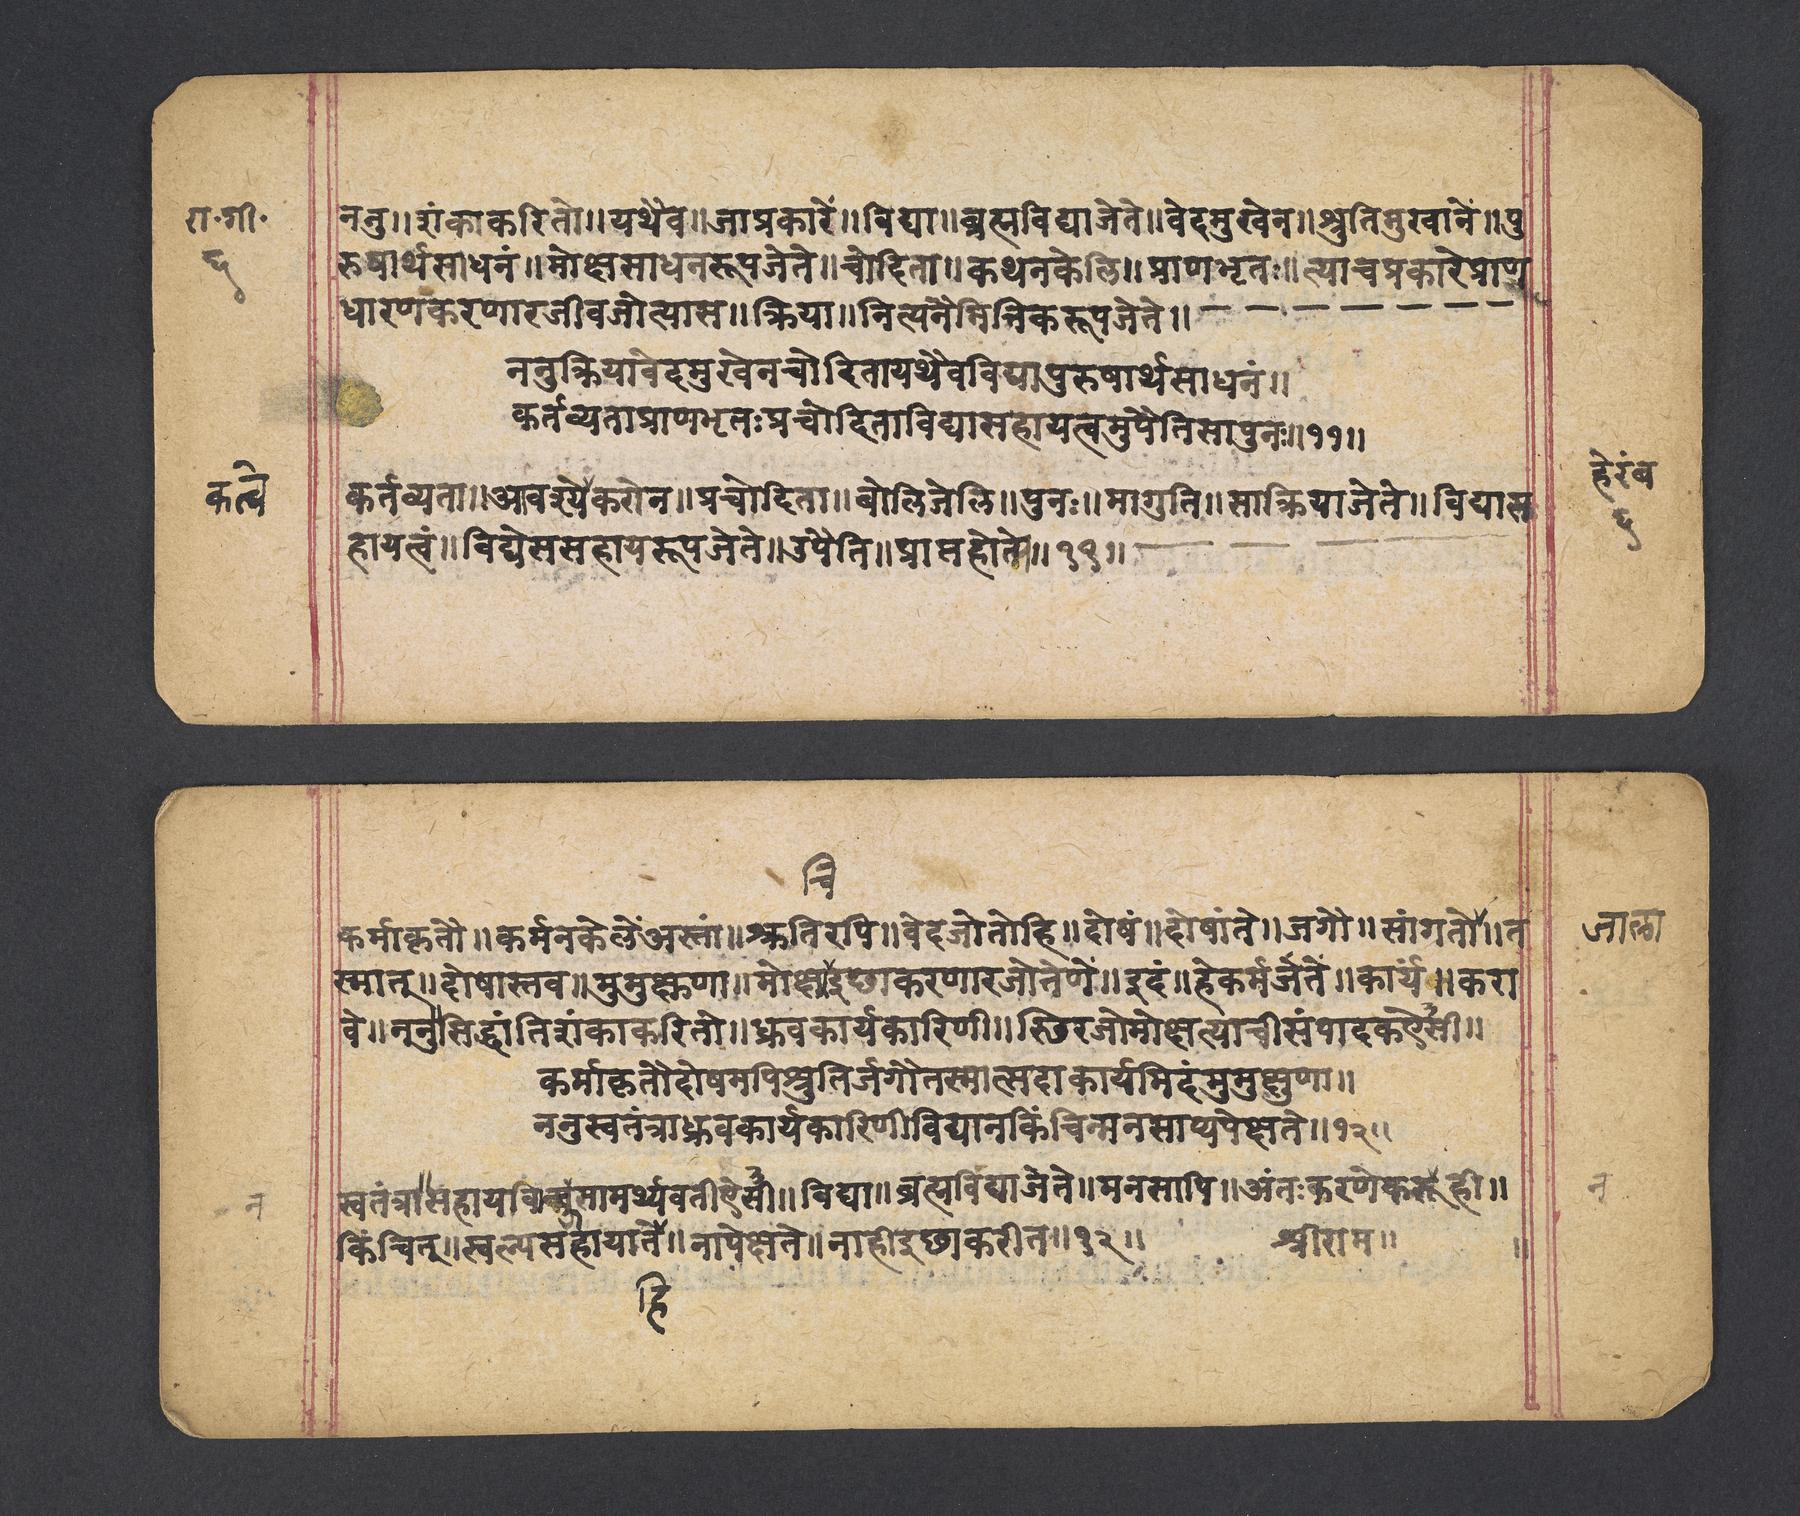 रा·गी·
६
ननु॥शंकाकरितो॥यथैव॥जाप्रकारें॥विद्या॥ब्रह्मविद्याजेते॥वेदमुखेन॥श्रुतिमुखानें॥पु
रुषार्थसाधनं॥मोक्षसाधनरूपजेते॥चोदिता॥कथनकेलि॥प्राणभृतः॥त्याचप्रकारेप्राण
धारणकरणारजीवजोत्यास॥क्रिया॥नित्यनैमित्तिकरूपजेते॥
ननुक्रियावेदमुखेनचोदितायथैवविद्यापुरुषार्थसाधनं॥
कर्तव्यताप्राणभृतःप्रचोदिताविद्यासहायत्वमुपैतिसापुनः॥११॥
कर्तव्यता॥अवश्येकरोन॥प्रचोदिता॥बोलिजेलि॥पुनः॥मागुति॥साक्रियाजेते॥विद्यास
हायत्वं॥विद्येससहायरूपजेते॥उपैति॥प्राप्तहोते॥११॥
कत्वे
हेरंब
६
चि
कर्माकृतौ॥कर्मनकेलेंअस्तां॥श्रुतिरपि॥वेदजोतोहि॥दोषं॥दोषांते॥जगौ॥सांगतो॥त
स्मात्॥दोषास्तव॥मुमुक्षुणा॥मोक्षइछाकरणारजोतेणें॥इदं॥हेकर्मजेंतें॥कार्यं॥करा
वे॥ननुसिद्धांतिशंकाकरितो॥ध्रुवकार्यकारिणी॥स्थिरजोमोक्षत्याचीसंपादकऐसी॥
कर्माकृतौदोषमपिश्रुतिर्जगौतस्मात्सदाकार्यमिदंमुमुक्षुणा॥
ननुस्वतंत्राध्रुवकार्यकारिणीविद्यानकिंचिन्मनसाप्यपेक्षते॥१२॥
स्वतंत्रासहायविनासामर्थ्यवतीऐसी॥विद्या॥ब्रह्मविद्याजेते॥मनसापि॥अंतःकरणेकरूही॥
किंचित्॥स्वल्पसहायाते॥नापेक्षते॥नाहीइछाकरीत॥१२॥ श्रीराम॥
हि
जाला
न
न